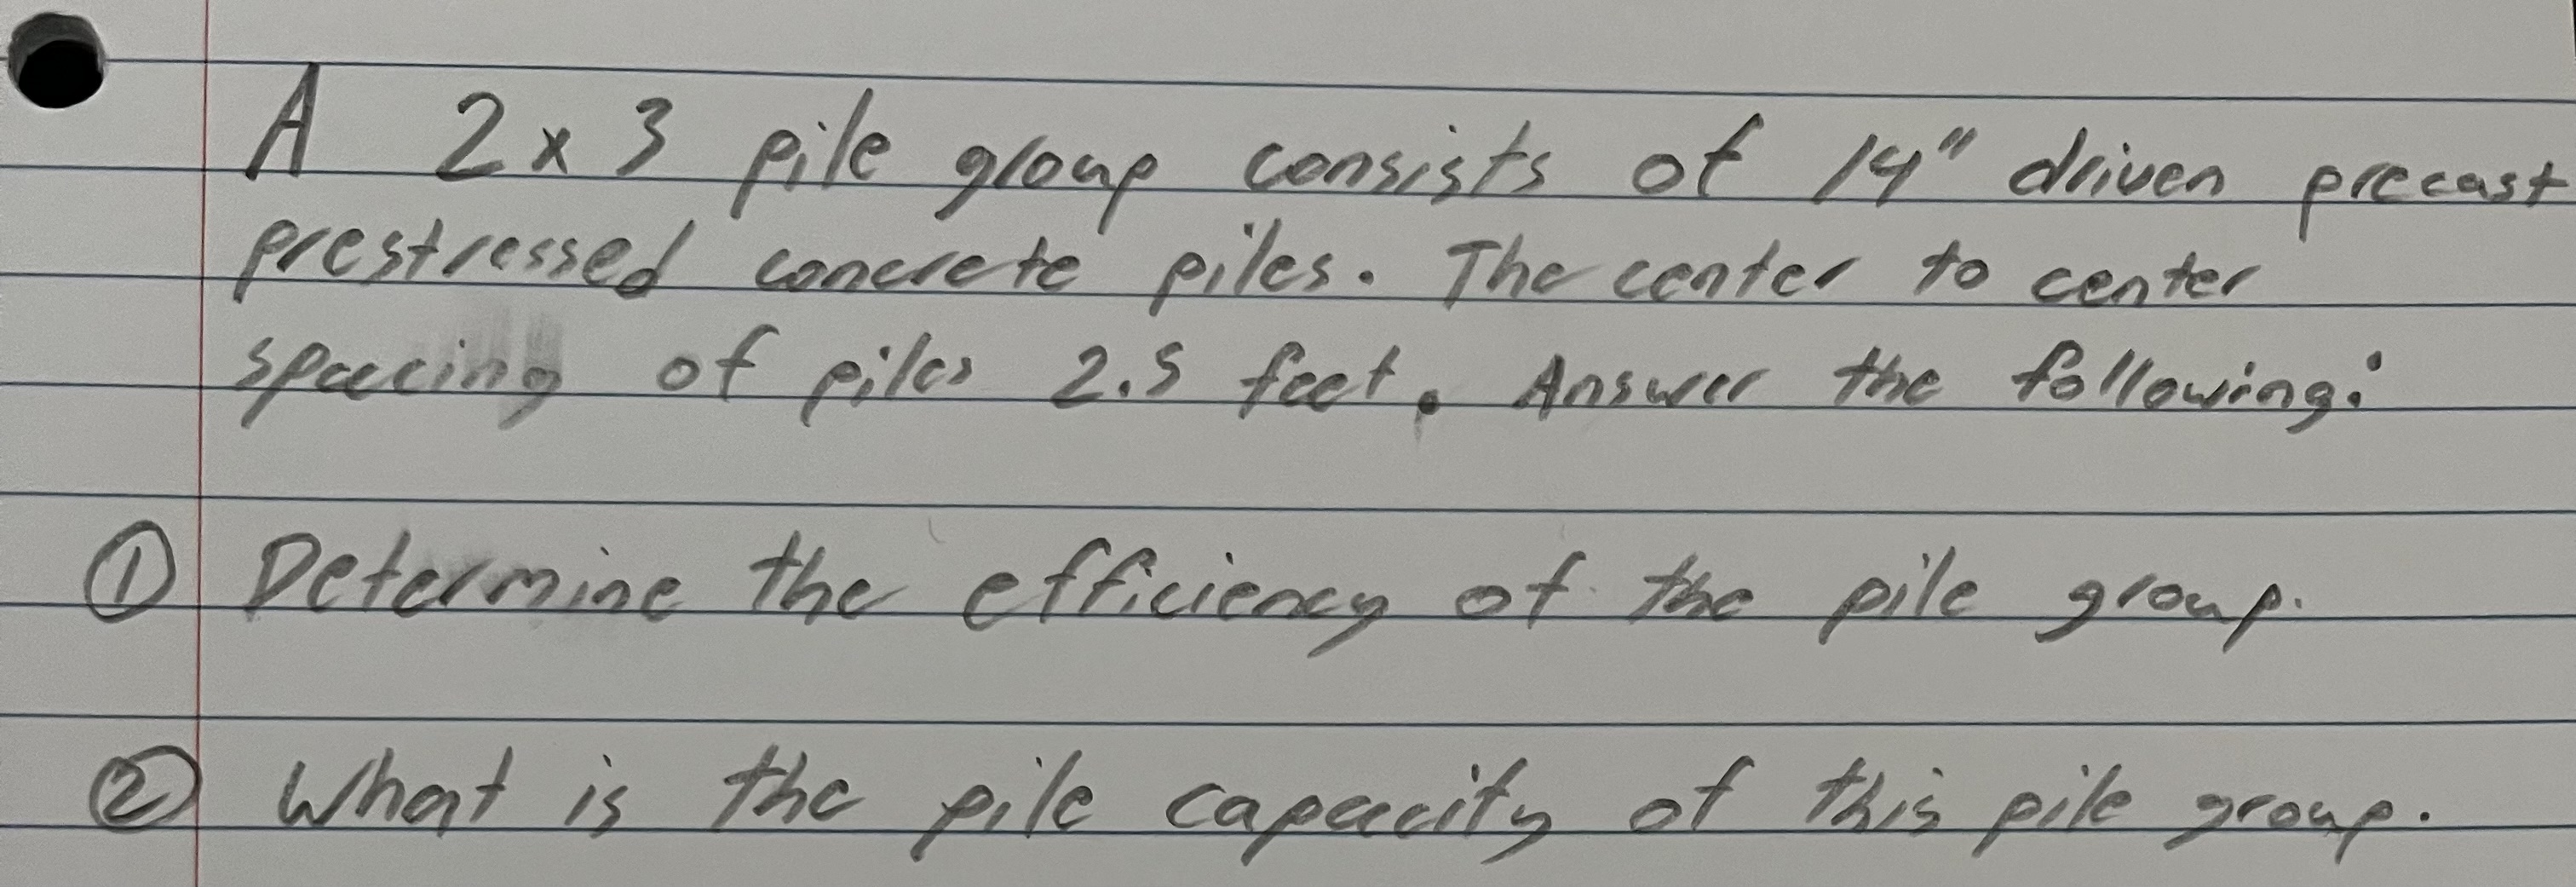 A 2 x 3 pile group consists of 14" driven precast
prestressed concrete piles. The center to center
spacing of piles 2.5 feet. Answer the following:
① Determine the efficiency of the pile group.
② What is the pile capacity of this pile group.